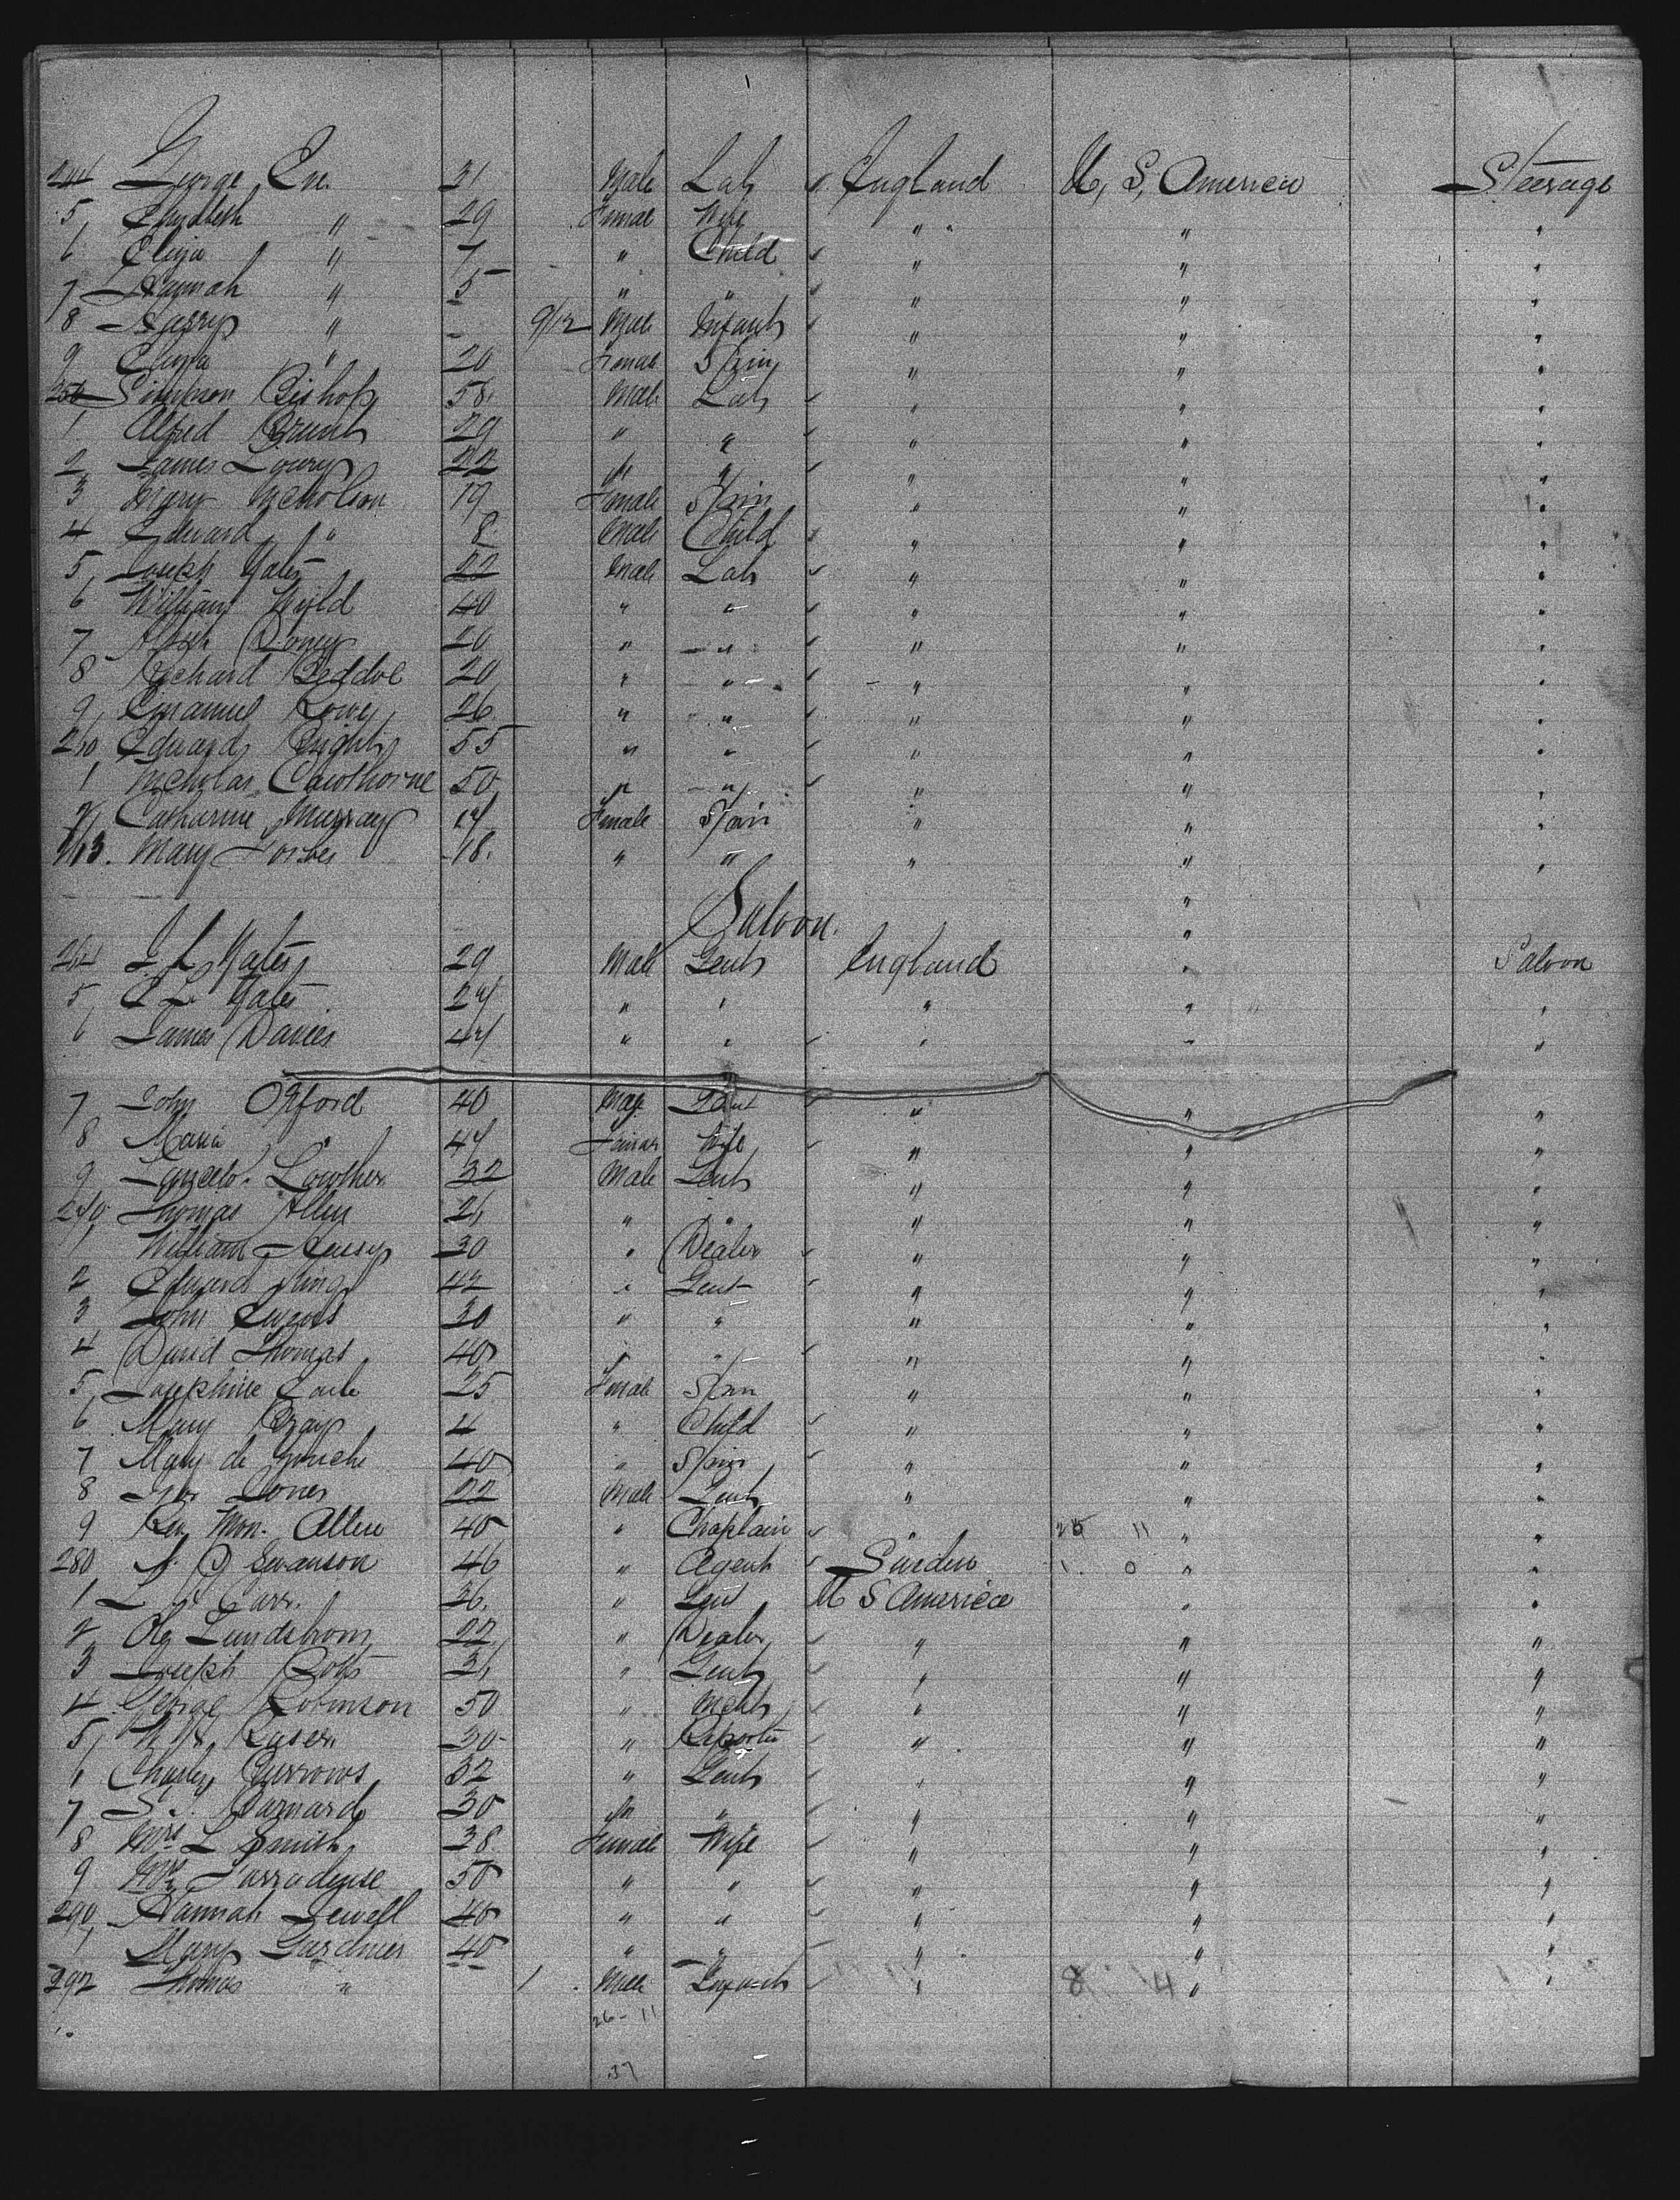 244 George Eve 31 Male Lab England U, S, America Steerage
5, " 29 Female Wife " " "
6 Eliza " 7 " Child " " "
7 Hannah " 5 " " " " "
8 Harry " - 9/12 Male Infant " " "
9 Eliza " 20 Female Spin " " "
250 Simpson Bishop 58 Male Lab " " "
1 Alfred Brunt 29 " " " " "
2 James Lowry 22 " " " " "
3 Mary Nicholson 19 Female Spin " " "
4 Edward " 8 Male Child " " "
5, Joseph Yates 22 Male Lab " " "
6 William Wild 40 " " " " "
7 20 " " " " "
8 Richard Beddoe 20 " " " " "
9, Emanuel Rowe 26 " " " " "
260 Edward Bright 55 " " " " "
1 Nicholas Cawthorne 50 " " " " "
2, Catharine Murray 17 Female Spin " " "
263. Mary Forbes 18. " " " " "
Saloon.
264 J. L. Yates 29 Male Gent England " Saloon
5, E L. Yates 24 " " " " "
6 James Davies 44 " " " " "
7 John Oxford 40 Male Gent " " "
8 Maria " 44 Female Wife " " "
9 Lancelo. Lowther 32 Male Gent " " "
270 Thomas Allen 21 " " " " "
1 William 30 " Dealer " " "
2 Edward King 42 " Gent " " "
3 John 30 " " " " "
4 David Thomas 40 " " " " "
5, Josephine 25 Female Spin " " "
6 Mary 4 " Child " " "
7 Mary de 40 " Spin " " "
8 Jones 22 Male Gent " " "
9 Rev Mon. Allen 40 " Chaplain " 25 11 " "
280 Swanson 46 " Agent Sweden 1 0 " "
1 Carr. 36. " Gent U S America " "
2 Lundstrom 22 " Dealer " " "
3 Joseph 31 " Gent " " "
4 George Robinson 50 " Mcht " " "
5, 30 " Reporter " " "
6 Charles Burrows 32 " Gent " " "
7 S. J. Barnard 30 " " " " "
8 Mrs L Smith 38 Female Wife " " "
9 Mrs 50 " " " " "
290, Hannah Sewell 40 " " " " "
1 Mary Gardiner 40 " " " " "
292 Thomas " 1 Male Infant " 8 4 " "
26 - 11
37